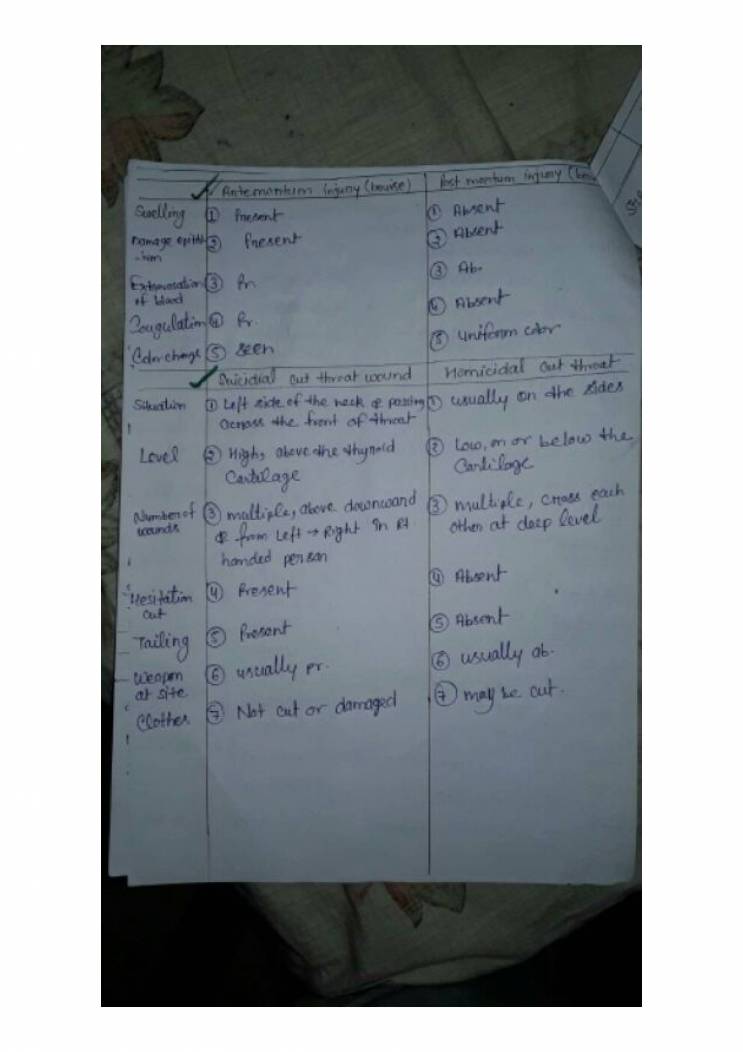 Antemortum injury (bruise) Post mortum injury (bruise
Swelling ① Present ① Absent
Damage epithe-lium ② Present ② Absent
Extravasation of blood ③ Pr. ③ Ab.
Coagulation ④ Pr. ④ Absent
Color change ⑤ seen ⑤ uniform color
Suicidial cut throat wound Homicidal cut throat
Situation ① Left side of the neck & passing ① usually on the sides
across the front of throat
Level ② High, above the thyroid ② Low, on or below the
Cartilage Cartilage
Number of wounds ③ multiple, above downward ③ multiple, cross each
& from Left → Right in Rt other at deep level
handed person
Hesitation cut ④ Present ④ Absent
Tailing ⑤ Present ⑤ Absent
Weapon at site ⑥ usually pr. ⑥ usually ab.
Clothes ⑦ Not cut or damaged ⑦ may be cut.